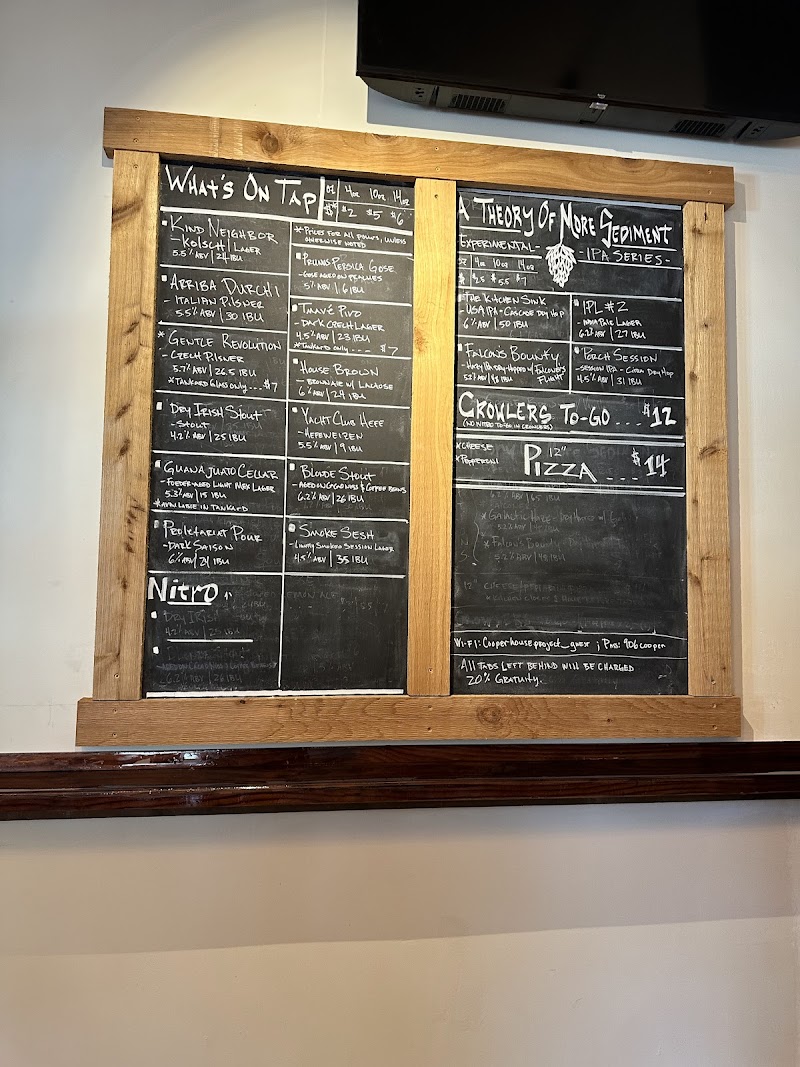 What's On Tap
oz 4oz 10oz 14oz
$ $2 $5 $6
Kind Neighbor
- Kolsch | Lager
5.5% ABV | 24 IBU
Arriba Durchi
- Italian Pilsner
5.5% ABV | 30 IBU
* Gentle Revolution
- Czech Pilsner
5.7% ABV | 26.5 IBU
* Tankard Glass Only ... $7
Dry Irish Stout
- Stout
4.2% ABV | 25 IBU
Guanajuato Cellar
- Foeder-Aged Light Mex Lager
5.3% ABV | 15 IBU
* Available in Tankard
Proletariat Pour
- Dark Saison
6% ABV | 21 IBU
Nitro
Dry Irish
4.2% ABV | 25 IBU
6.2% ABV | 26 IBU
* Prices for all pours, unless
otherwise noted
Prunus Persica Gose
- Gose Aged on Peaches
5% ABV | 6 IBU
Tmavé Pivo
- Dark Czech Lager
4.5% ABV | 23 IBU
* Tankard Only ---- $7
House Brown
- Brown Ale w/ Lactose
6% ABV | 24 IBU
Yacht Club Hefe
- Hefeweizen
5.5% | 9 IBU
Blonde Stout
- Aged on Cacao Nibs & Coffee Beans
6.2% ABV | 26 IBU
Smoke Sesh
- Lightly Smoked Session Lager
4.5% ABV | 35 IBU
A Theory Of More Sediment
Experimental - IPA Series -
oz 4oz 10oz 14oz
$ $2.5 $5.5 $7
The Kitchen Sink
- USA IPA - Cascade Dry Hop
6% ABV | 50 IBU
Falcon's Bounty
- Hazy IPA Dry-Hopped w/ Falconer's
Flight
5.2% ABV | 48 IBU
IPL #2
- India Pale Lager
6.2% ABV | 27 IBU
Porch Session
- Session IPA - Citra Dry Hop
4.5% ABV | 31 IBU
Crowlers To-Go .... $12
(No Nitro To-Go in Crowlers)
* Cheese
* Pepperoni
12"
Pizza .... $14
6.2% ABV | 65 IBU
* Galactic Haze - Dry Hop w/
* Falcon's Bounty
5.2% ABV | 48 IBU
Wi-Fi: Cooperhouseproject_guest ; PWD: 906cooper
All tabs left behind will be charged
20% Gratuity.